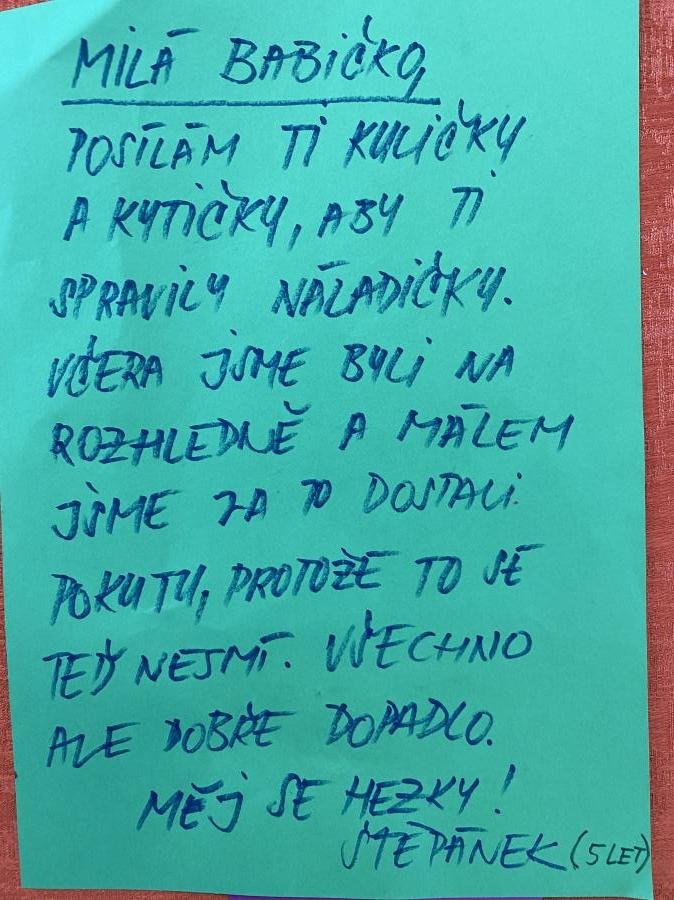 MILÁ BABIČKO,
POSÍLÁM TI KULIČKY
A KYTIČKY, ABY TI
SPRAVILY NÁLADIČKY.
VČERA JSME BYLI NA
ROZHLEDNĚ A MÁLEM
JSME ZA TO DOSTALI
POKUTY, PROTOŽE TO SE
TEĎ NEJMÍ. VŠECHNO
ALE DOBŘE DOPADLO.
MĚJ SE HEZKY!
ŠTĚPÁNEK (5 LET)